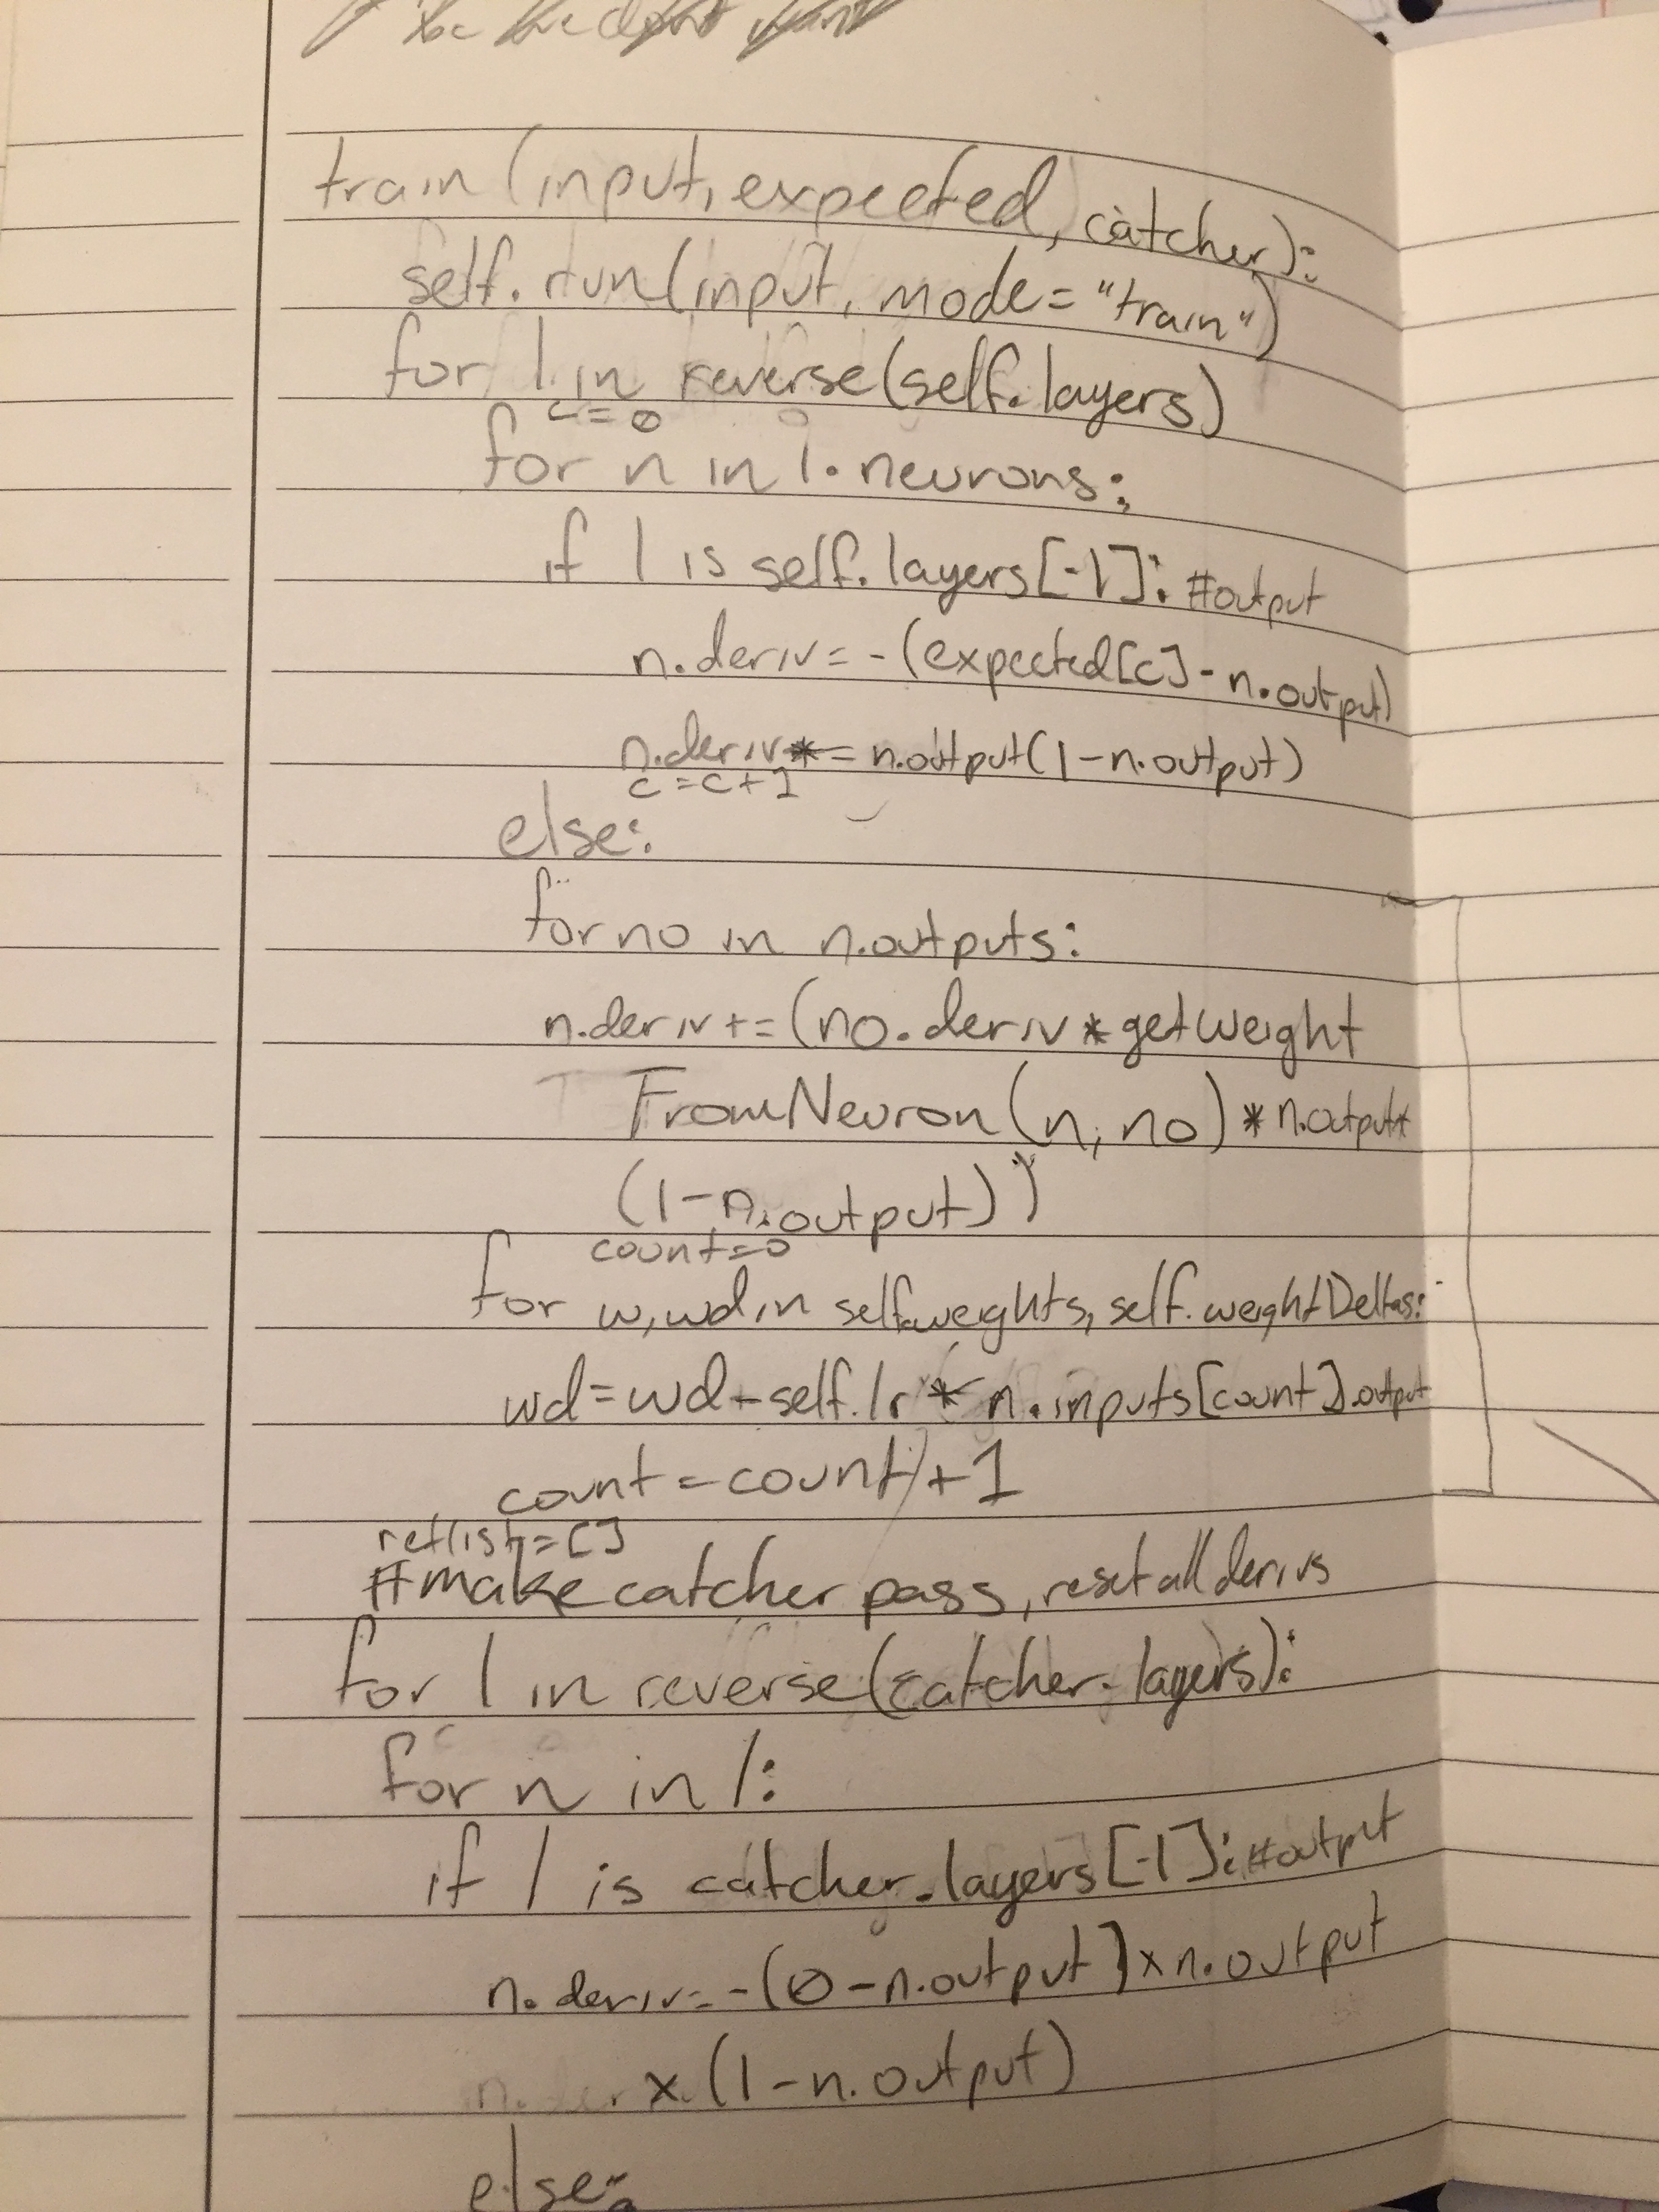 train(input, expected, catcher):
self.run(input, mode="train")
for l in reverse(self.layers)
c=0
for n in l.neurons:
if l is self.layers[-1]: #output
n.deriv=-(expected[c]-n.output)
n.deriv*=n.output(1-n.output)
c=c+1
else:
for no in n.outputs:
n.deriv+=(no.deriv*getWeight
FromNeuron(n, no)*n.output*
(1-n.output))
count=0
for w,wd in self.weights, self.weightDeltas:
wd=wd-self.lr*n.inputs[count].output
count=count+1
retlist=[]
#make catcher pass, reset all derivs
for l in reverse(catcher.layers):
for n in l:
if l is catcher.layers[-1]: #output
n.deriv=-(0-n.output)xn.output
x(1-n.output)
else: